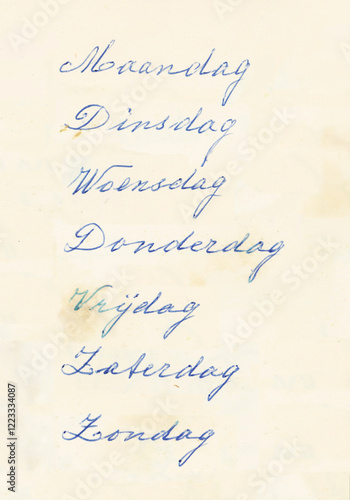 Maandag
Dinsdag
Woensdag
Donderdag
Vrijdag
Zaterdag
Zondag
Adobe Stock | #1223334087